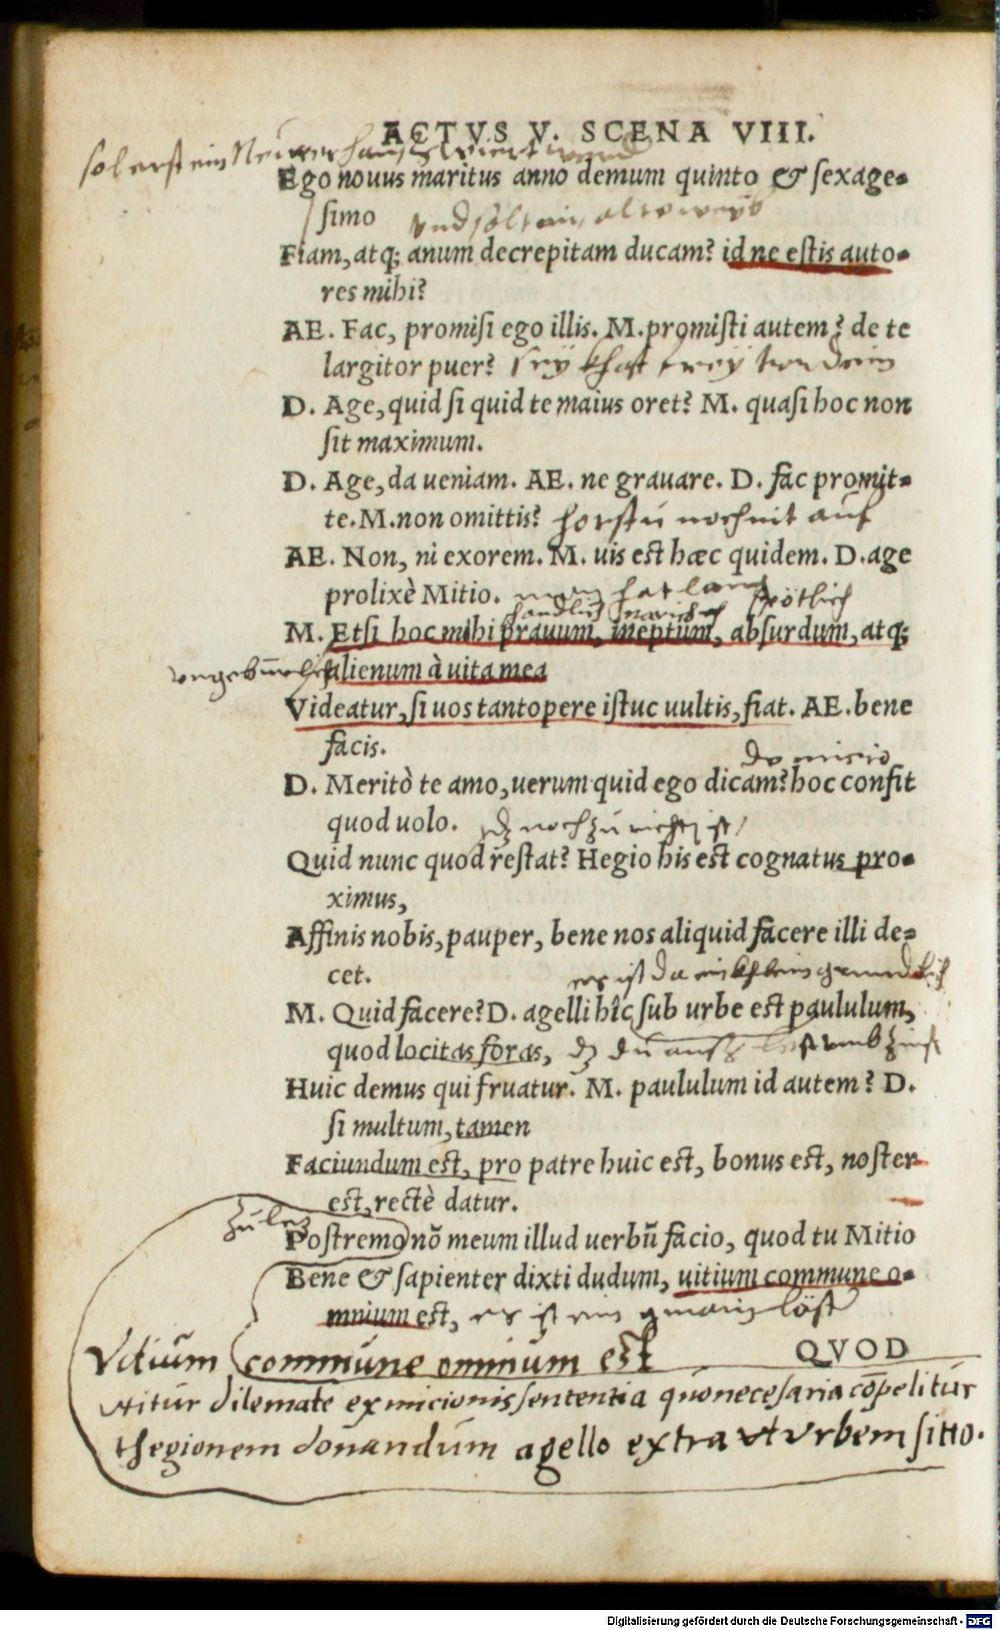 ACTVS V. SCENA VIII.
sol erst ein Neuwer
Ego nouus maritus anno demum quinto & sexage-
ſimo
und solt ein alts weyb
Fiam, atq; anum decrepitam ducam? id ne eſtis auto-
res mihi?
AE. Fac, promiſi ego illis. M. promiſti autem? de te
largitor puer?
D. Age, quid ſi quid te maius oret? M. quaſi hoc non
ſit maximum.
D. Age, da ueniam. AE. ne grauare. D. fac promit-
te. M. non omittis? horstu noch nit auf
AE. Non, ni exorem. M. uis eſt hæc quidem. D. age
prolixè Mitio. man hat lang
schandlich narrisch spötlich
M. Etſi hoc mihi prauum, ineptum, abſurdum, atq;
ungebürlich alienum à uita mea
Videatur, ſi uos tantopere iſtuc uultis, fiat. AE. bene
facis.
du micio
D. Meritò te amo, uerum quid ego dicam? hoc confit
quod uolo. dz noch zu richten ist /
Quid nunc quod reſtat? Hegio his eſt cognatus pro-
ximus,
Affinis nobis, pauper, bene nos aliquid facere illi de-
cet.
es ist da ein khlein
M. Quid facere? D. agelli hîc ſub urbe eſt paululum,
quod locitas foras, dz du aus umb zins
Huic demus qui fruatur. M. paululum id autem? D.
ſi multum, tamen
Faciundum eſt, pro patre huic eſt, bonus eſt, noſter
eſt, rectè datur.
zu lez
Poſtremo nõ meum illud uerbũ facio, quod tu Mitio
Bene & ſapienter dixti dudum, uitium commune o-
mnium eſt, es ist ein gmain
QVOD
Vitium commune omnium est
utitur dilemate ex micionis sententia quo necesaria cõpelitur
thegionem donandum agello extra ut urbem sitto.
Digitalisierung gefördert durch die Deutsche Forschungsgemeinschaft - DFG